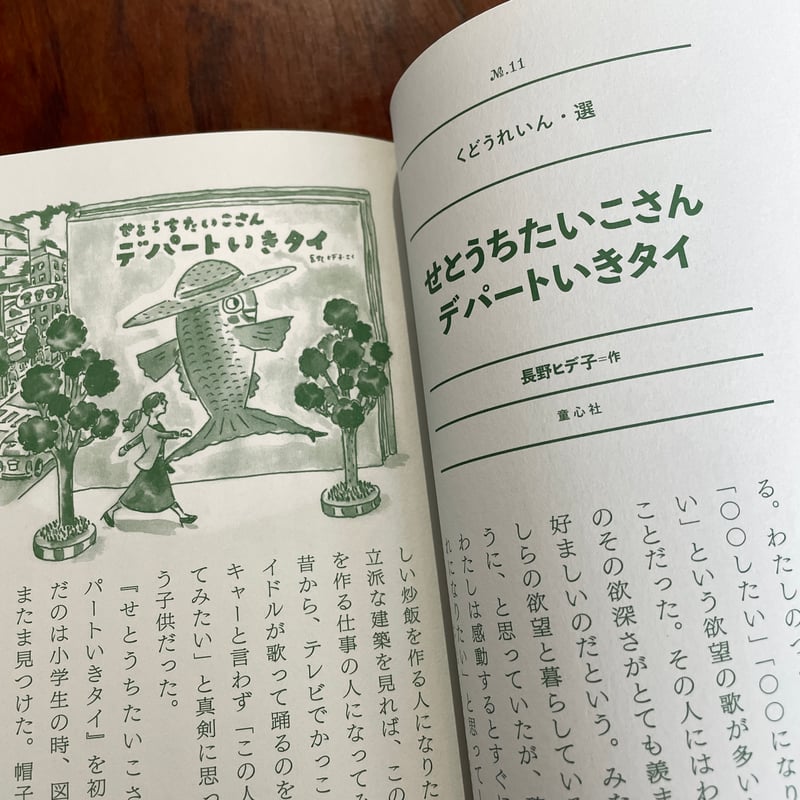 №.11
くどうれいん・選
せとうちたいこさん
デパートいきタイ
長野ヒデ子=作
童心社
る。わたしの
「〇〇したい」「〇〇になり
い」という欲望の歌が多い
ことだった。その人にはわ
のその欲深さがとても羨ま
好ましいのだという。み
しらの欲望と暮らしてい
うに、と思っていたが、
わたしは感動するとすぐ
れになりたい」と思って
せとうちたいこさん
デパートいきタイ
長野ヒデ子さく
しい炒飯を作る人になりた
立派な建築を見れば、この
を作る仕事の人になってみ
昔から、テレビでかっこ
イドルが歌って踊るのを
キャーと言わず「この人
てみたい」と真剣に思っ
う子供だった。
『せとうちたいこさ
パートいきタイ』を初
だのは小学生の時、図
またま見つけた。帽子